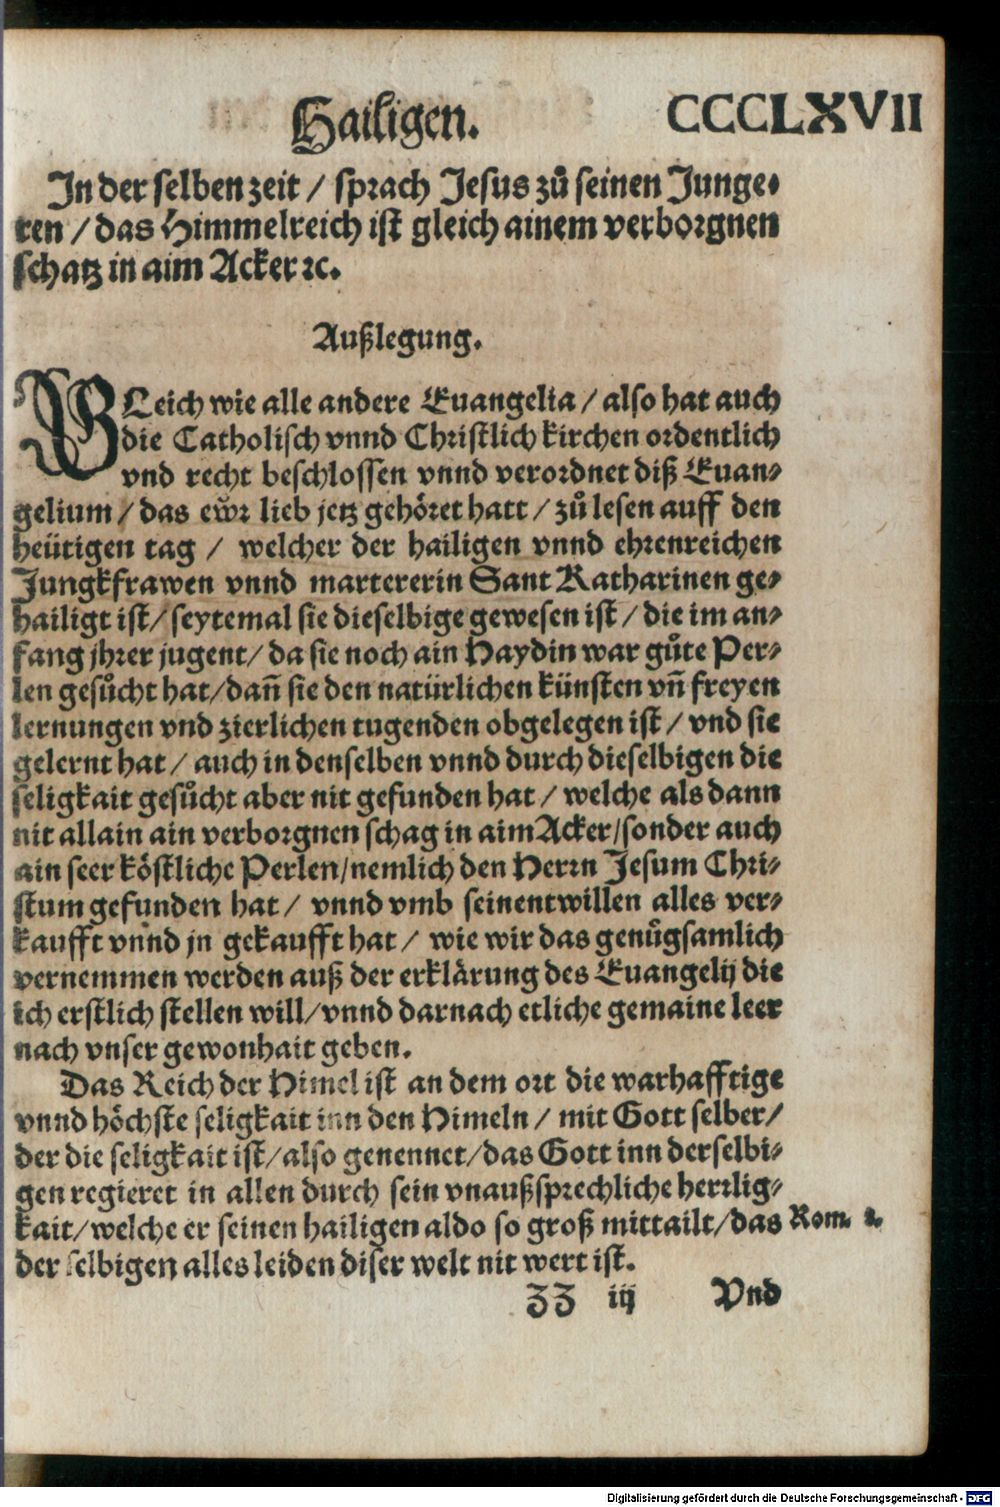 Hailigen. CCCCLXVII
In der selben zeit / sprach Jesus zů seinen Junge⸗
ren / das Himmelreich ist gleich ainem verborgnen
schatz in aim Acker ꝛc.
Außlegung.
GLeich wie alle andere Euangelia / also hat auch
die Catholisch vnnd Christlich kirchen ordentlich
vnd recht beschlossen vnnd verordnet diß Euan⸗
gelium / das ewr̊ lieb jetz gehöret hatt / zů lesen auff den
heütigen tag / welcher der hailigen vnnd ehrenreichen
Jungkfrawen vnnd martererin Sant Katharinen ge⸗
hailigt ist / seytemal sie dieselbige gewesen ist / die im an⸗
fang jhrer jugent / da sie noch ain Haydin war gůte Per⸗
len gesůcht hat / dañ sie den natürlichen künsten vñ freyen
lernungen vnd zierlichen tugenden obgelegen ist / vnd sie
gelernt hat / auch in denselben vnnd durch dieselbigen die
seligkait gesůcht aber nit gefunden hat / welche als dann
nit allain ain verborgnen schag in aim Acker / sonder auch
ain seer köstliche Perlen / nemlich den Herrn Jesum Chri⸗
stum gefunden hat / vnnd vmb seinentwillen alles ver⸗
kaufft vnnd jn gekaufft hat / wie wir das genůgsamlich
vernemmen werden auß der erklärung des Euangelij die
ich erstlich stellen will / vnnd darnach etliche gemaine leer
nach vnser gewonhait geben.
Das Reich der Himel ist an dem ort die warhafftige
vnnd höchste seligkait inn den Himeln / mit Gott selber /
der die seligkait ist / also genennet / das Gott inn derselbi⸗
gen regieret in allen durch sein vnaußsprechliche herrlig⸗
kait / welche er seinen hailigen aldo so groß mittailt / das Rom. 8.
der selbigen alles leiden diser welt nit wert ist.
ZZ iij Vnd
Digitalisierung gefördert durch die Deutsche Forschungsgemeinschaft - DFG